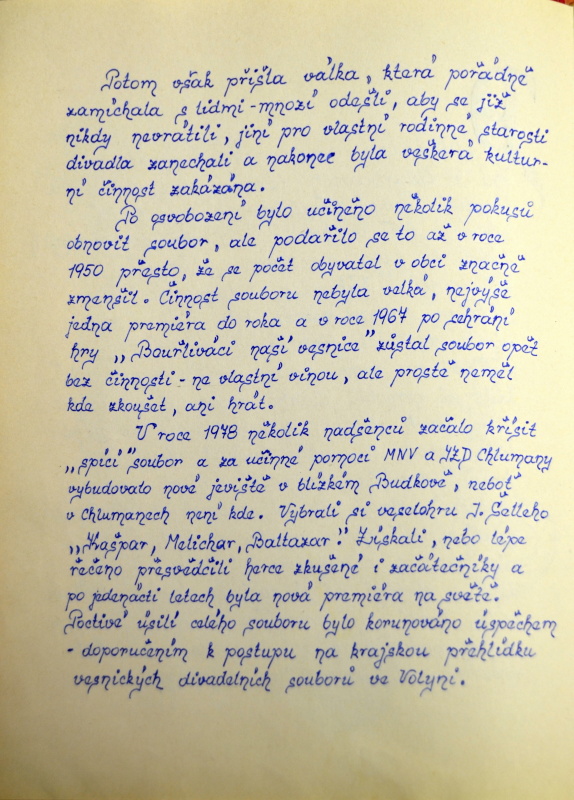 Potom však přišla válka, která pořádně
zamíchala s lidmi - mnozí odešli, aby se již
nikdy nevrátili, jiní pro vlastní rodinné starosti
divadla zanechali a nakonec byla veškerá kultur-
ní činnost zakázána.
Po osvobození bylo učiněno několik pokusů
obnovit soubor, ale podařilo se to až v roce
1950 přesto, že se počet obyvatel v obci značně
zmenšil. Činnost souboru nebyla velká, nejvýše
jedna premiéra do roka a v roce 1967 po sehrání
hry „Bouřliváci naší vesnice" zůstal soubor opět
bez činnosti - ne vlastní vinou, ale prostě neměl
kde zkoušet, ani hrát.
V roce 1978 několik nadšenců začalo křísit
„spící" soubor a za účinné pomoci MNV a JZD Chlumany
vybudovalo nové jeviště v blízkém Budkově, neboť
v Chlumanech není kde. Vybrali si veselohru J. Šetleho
„Kašpar, Melichar, Baltazar." Získali, nebo lépe
řečeno přesvědčili herce zkušené i začátečníky a
po jedenácti letech byla nová premiéra na světě.
Poctivé úsilí celého souboru bylo korunováno úspěchem
- doporučením k postupu na krajskou přehlídku
vesnických divadelních souborů ve Volyni.